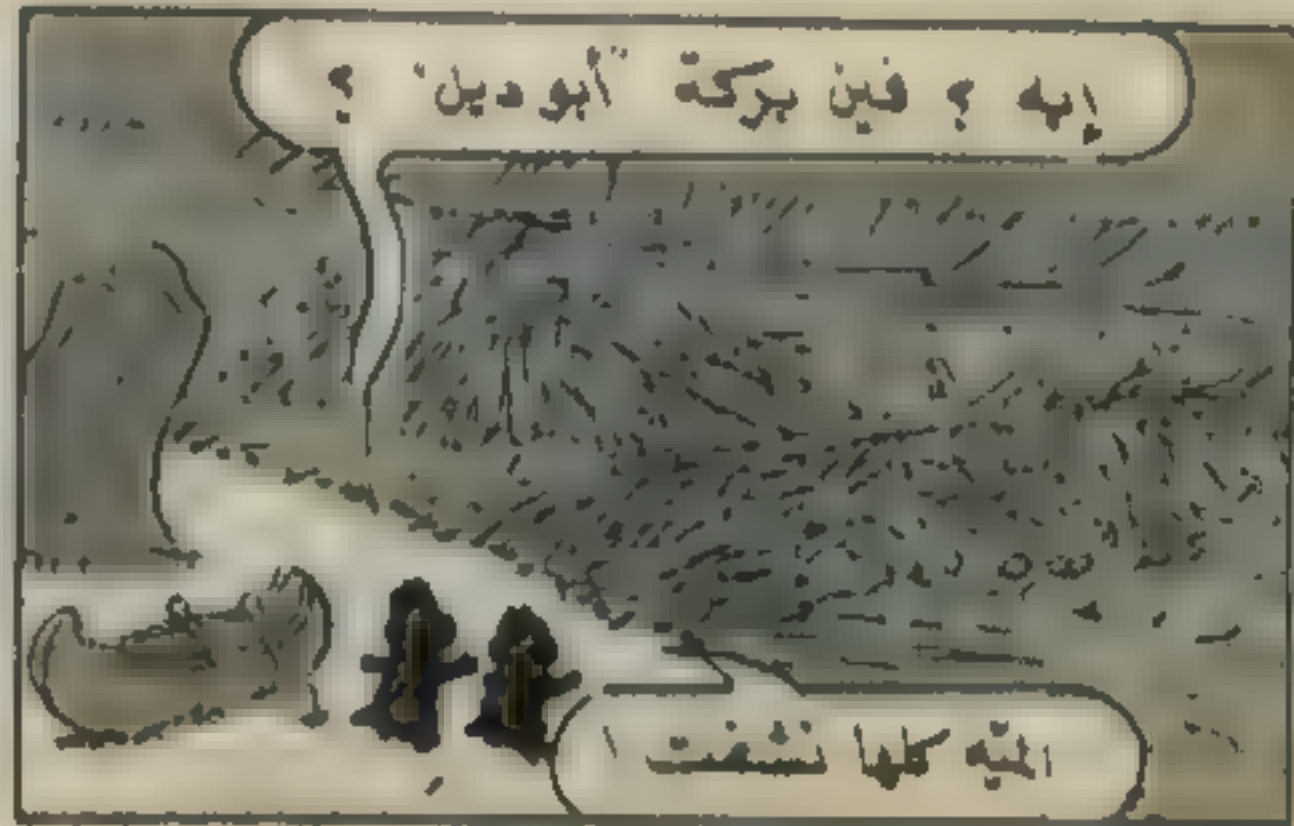 إيه ؟ فين بركة "أبو دين" ؟
الميّه كلها نشفت !